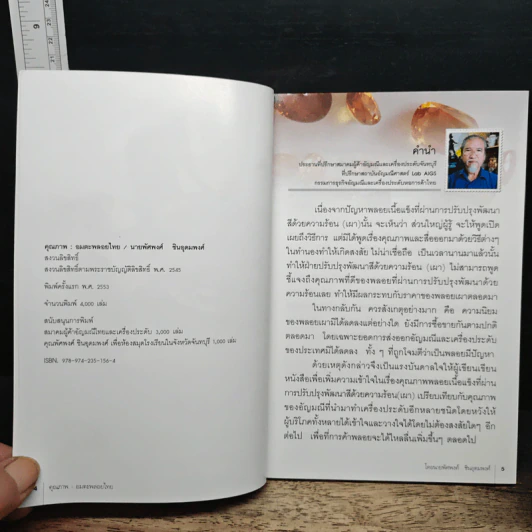 คุณภาพ : อมตะพลอยไทย / นายพัศพงศ์ ชินอุดมพงศ์
สงวนลิขสิทธิ์
สงวนลิขสิทธิ์ตามพระราชบัญญัติลิขสิทธิ์ พ.ศ. 2545
พิมพ์ครั้งแรก พ.ศ. 2553
จำนวนพิมพ์ 4,000 เล่ม
สนับสนุนการพิมพ์
สมาคมผู้ค้าอัญมณีไทยและเครื่องประดับ 3,000 เล่ม
คุณพัศพงศ์ ชินอุดมพงศ์ เพื่อห้องสมุดโรงเรียนในจังหวัดจันทบุรี 1,000 เล่ม
ISBN. 978-974-235-156-4
4 คุณภาพ - อมตะพลอยไทย
คำนำ
ประธานที่ปรึกษาสมาคมผู้ค้าอัญมณีและเครื่องประดับจันทบุรี
ที่ปรึกษาสถาบันอัญมณีศาสตร์ Lab AIGS
กรรมการธุรกิจอัญมณีและเครื่องประดับหอการค้าไทย
เนื่องจากปัญหาพลอยเนื้อแข็งที่ผ่านการปรับปรุงพัฒนา
สีด้วยความร้อน (เผา)นั้น จะเห็นว่า ส่วนใหญ่ผู้รู้ จะให้พูดเปิด
เผยถึงวิธีการ แต่มิได้พูดเรื่องคุณภาพและสื่อออกมาด้วยวิธีต่างๆ
ในทำนองทำให้เกิดสงสัย ไม่น่าเชื่อถือ เป็นเวลานานมาแล้วนั้น
ทำให้ฝ่ายปรับปรุงพัฒนาสีด้วยความร้อน (เผา) ไม่สามารถพูด
ชี้แจงถึงคุณภาพที่ดีของพลอยที่ผ่านการปรับปรุงพัฒนาด้วย
ความร้อนเลย ทำให้มีผลกระทบกับราคาของพลอยเผาตลอดมา
ในทางกลับกัน ควรสังเกตุอย่างมาก คือ ความนิยม
ของพลอยเผามิได้ลดลงแต่อย่างใด ยังมีการซื้อขายกันตามปกติ
ตลอดมา โดยเฉพาะยอดการส่งออกอัญมณีและเครื่องประดับ
ของประเทศมิได้ลดลง ทั้ง ๆ ที่ถูกโจมตีว่าเป็นพลอยมีปัญหา
ด้วยเหตุดังกล่าวจึงเป็นแรงบันดาลใจให้ผู้เขียนเขียน
หนังสือเพื่อเพิ่มความเข้าใจในเรื่องคุณภาพพลอยเนื้อแข็งที่ผ่าน
การปรับปรุงพัฒนาสีด้วยความร้อน(เผา) เปรียบเทียบกับคุณภาพ
ของอัญมณีที่นำมาทำเครื่องประดับอีกหลายชนิดโดยหวังให้
ผู้บริโภคทั้งหลายได้เข้าใจและวางใจได้โดยไม่ต้องสงสัยใดๆ อีก
ต่อไป เพื่อที่การค้าพลอยจะได้ไหลลื่นเพิ่มขึ้นๆ ตลอดไป
โดยนายพัศพงศ์ ชินอุดมพงศ์ 5